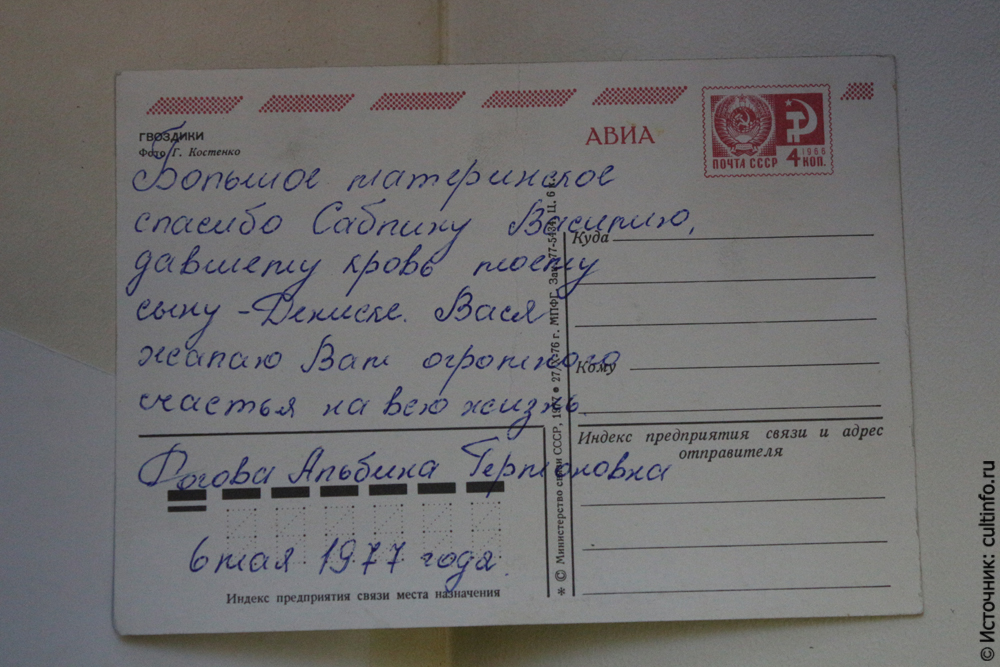 ГВОЗДИКИ
Фото Г. Костенко
АВИА
ПОЧТА СССР 4 КОП.
1966
Большое материнское
спасибо Саблину Василию,
давшему кровь моему
сыну - Дениске. Вася
желаю Вам огромного
счастья на всю жизнь.
Фогова Альбина Германовна
6 мая 1977 года.
Куда
Кому
Индекс предприятия связи и адрес
отправителя
Индекс предприятия связи места назначения
* © Министерство связи СССР, 1977 • 27/X-76 г. МПФГ. Зак. Ц. 6 к.
© Источник: cultinfo.ru